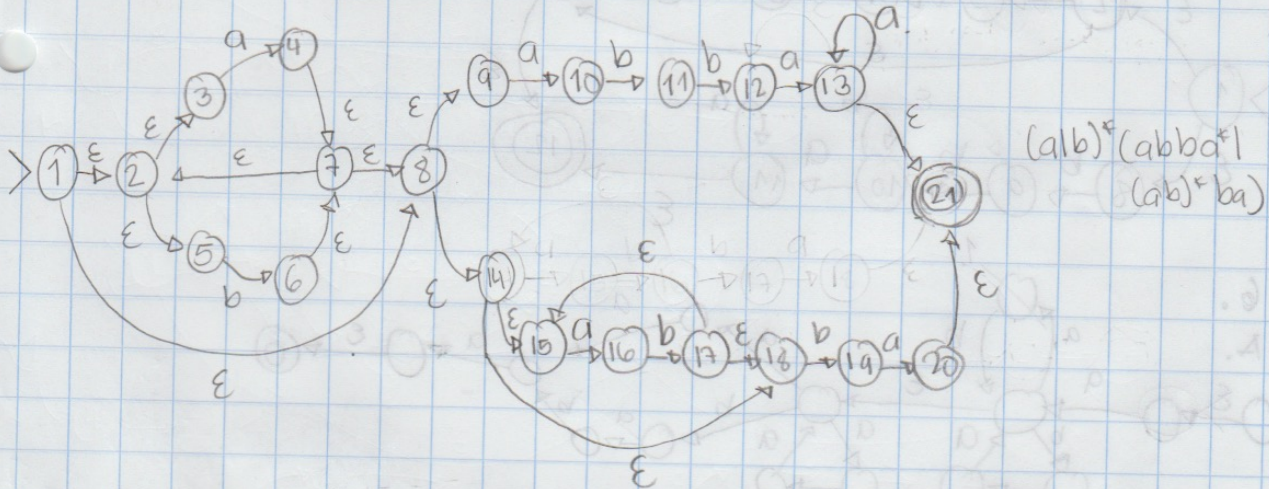 a
4
3
ε
ε
1
ε
2
ε
7
ε
8
ε
5
b
6
ε
ε
ε
9
a
10
b
11
b
12
a
13
a
ε
21
ε
14
ε
15
a
16
b
17
ε
ε
18
b
19
a
20
ε
ε
(a|b)* (abba*|
(ab)* ba)